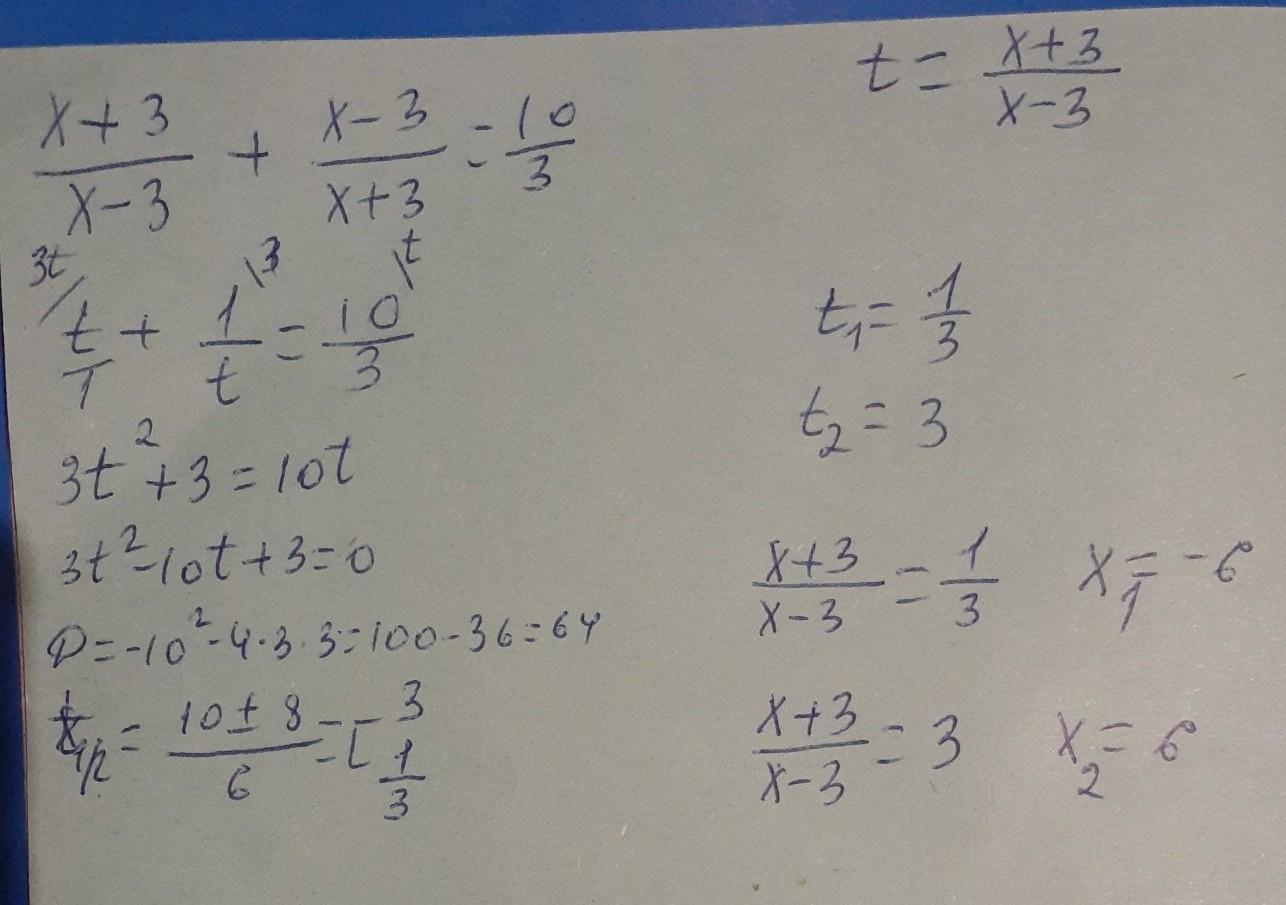 (x+3)/(x-3) + (x-3)/(x+3) = 10/3
t = (x+3)/(x-3)
3t/ t/1 + 1/t \3 = 10/3 \t
3t² + 3 = 10t
3t² - 10t + 3 = 0
D = -10² - 4·3·3 = 100 - 36 = 64
t1/2 = (10 ± 8)/6 = [ 3
1/3
t₁ = 1/3
t₂ = 3
(x+3)/(x-3) = 1/3 x₁ = -6
(x+3)/(x-3) = 3 x₂ = 6